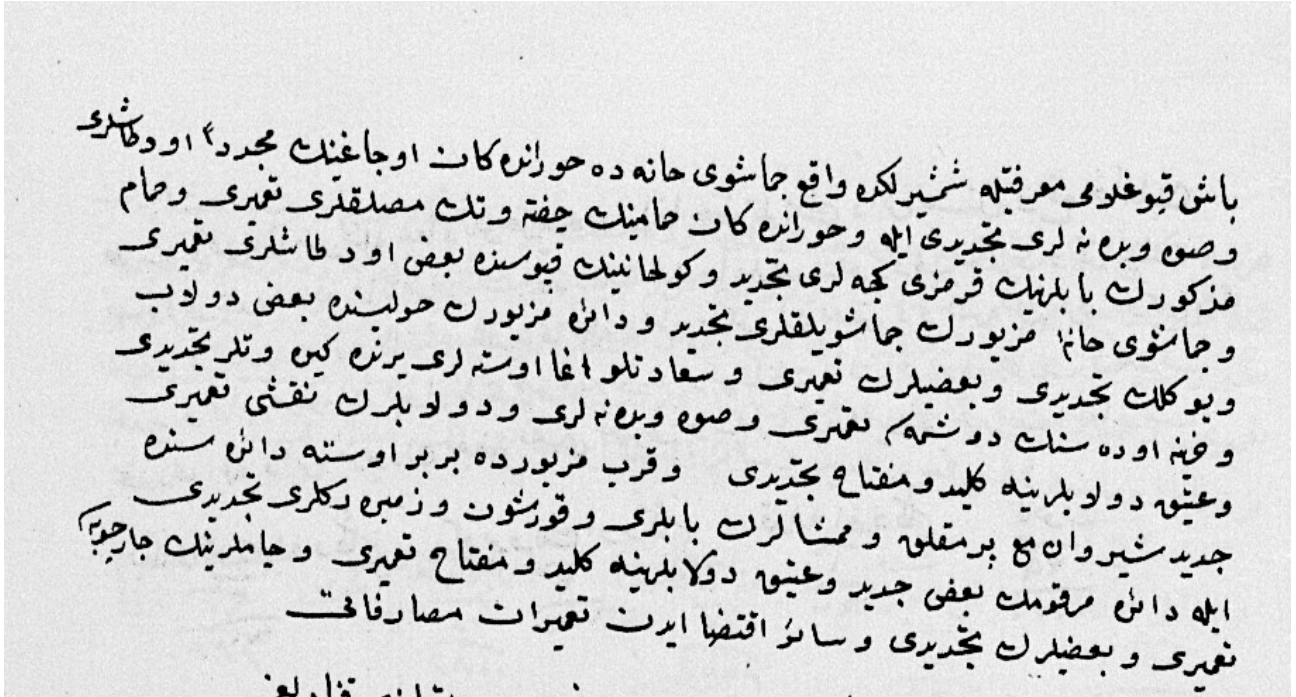 باش قپو غلامی معرفتیله شمشیرلكده واقع جماشوی خانه ده جوارنده كائن اوجاغینك مجدداً اود طاشلری
و صوه و بدنه لری تجدیدی ایله و جوارنده كائن حمامینك چفته و تك مصلقلری تعمیری و حمام
مذكورك بابلرینك قرمزی كچه لری تجدید و كولخانینك قپوسنده بعض اود طاشلری تعمیری
و جماشوی خانهٔ مزبورك جماشویلقلری تجدید و دائرهٔ مزبورك حولیسنده بعض دولاب
و یوكلك تجدیدی و بعضیلرك تعمیری و سعادتلو اغا اوسته لری یرنده وتلر تجدیدی
و خزینه اوده سنك دوشمه تعمیری و صوه و بدنه لری و دولابلرك نقشی تعمیری
و عتیق دولابلرینه كلید و مفتاح تجدیدی و قرب مزبورده بربر اوسته دائره سنده
جدید شیروان مع پرمقلق و ممشالرك بابلری و قورشون و زمبره كلری تجدیدی
ایله دائره مرقومك بعض جدید و عتیق دولابلرینه كلید و مفتاح تعمیری و جاملرینك چارچوبه
تعمیری و بعضیلرك تجدیدی و سائر اقتضا ایدن تعمیرات مصارفاتی